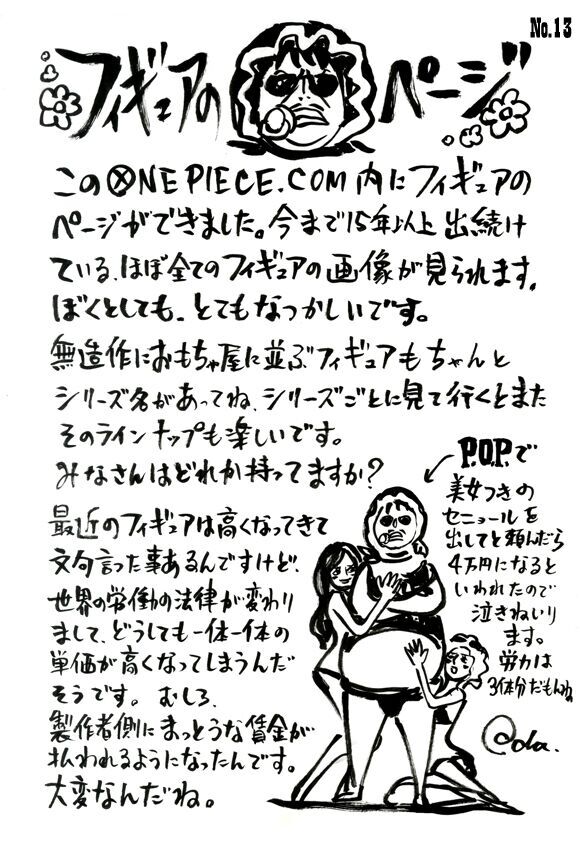 No.13
フィギュアのページ
このONE PIECE.COM内にフィギュアの
ページができました。今まで15年以上出続け
ている、ほぼ全てのフィギュアの画像が見られます。
ぼくとしても、とてもなつかしいです。
無造作におもちゃ屋に並ぶフィギュアもちゃんと
シリーズ名があってね、シリーズごとに見て行くとまた
そのラインナップも楽しいです。
みなさんはどれか持ってますか?
最近のフィギュアは高くなってきて
文句言った事あるんですけど、
世界の労働の法律が変わり
まして、どうしても一体一体の
単価が高くなってしまうんだ
そうです。むしろ、
製作者側にまっとうな賃金が
払われるようになったんです。
大変なんだね。
P.O.P.で
美女つきの
セニョールを
出してと頼んだら
4万円になると
いわれたので
泣きねいり
ます。
労力は
3体分だもんね
Oda.